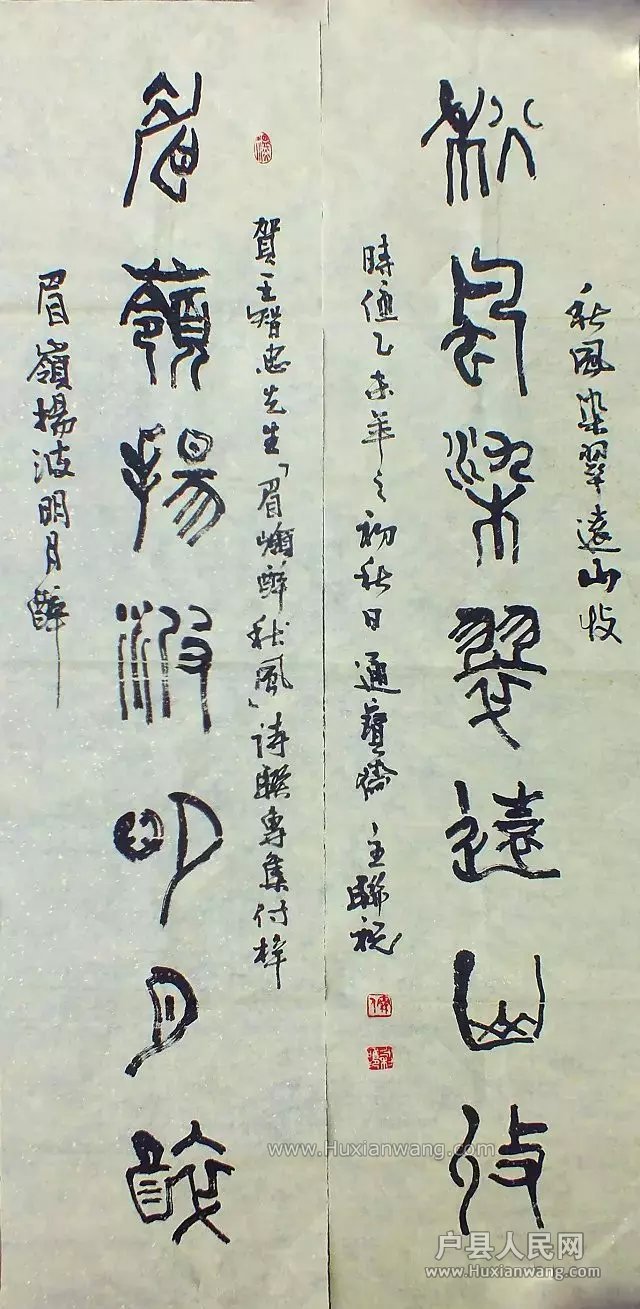 秋風染翠遠山
秋風染翠遠山
時值乙未年之初秋日通寶齋主聯祝
賀王智忠先生「眉嶺醉秋風」詩聯專集付梓
眉嶺揚波明月醉
眉嶺揚波明月醉
www.Huxianwang.com
户县人民网
www.Huxianwang.com